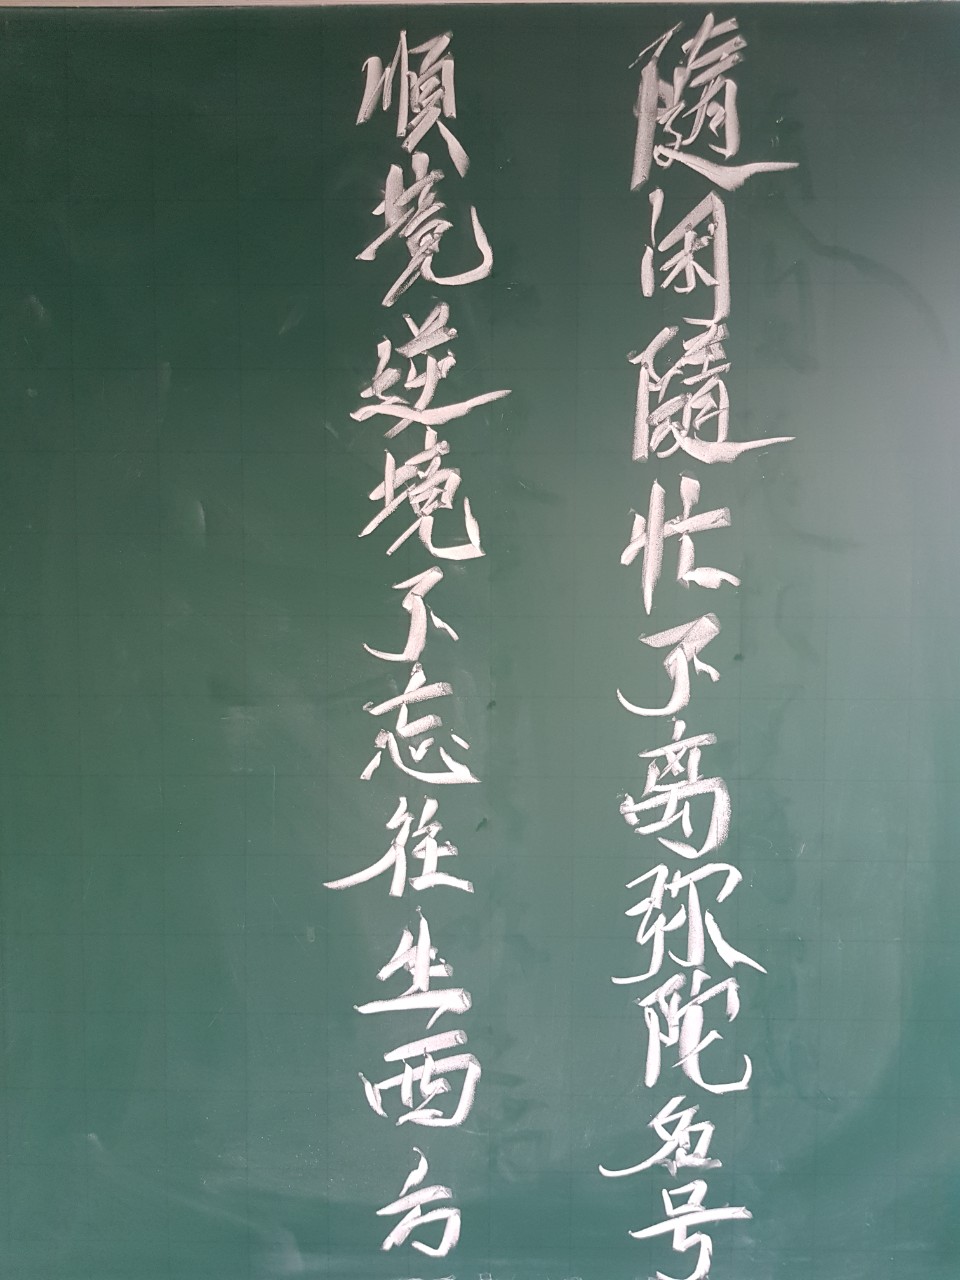 隨闲隨忙不离弥陀名号
順境逆境不忘往生西方